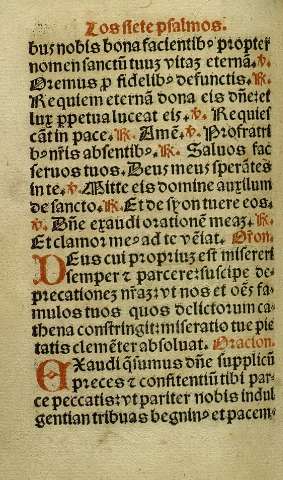 Los siete psalmos.
bus nobis bona facientibꝰ propter
nomen sanctū tuuz vitaz eternā. ℣.
Oremus ꝓ fidelibꝰ defunctis. ℟.
Requiem eternā dona eis dn̄e: et
lux ꝑpetua luceat eis. ℣. Requies
cāt in pace. ℟. Amē. ℣. Pro fratri
bꝰ nr̄is absentibꝰ. ℟. Saluos fac
seruos tuos. Deus meus sperātes
in te. ℣. Mitte eis domine auxilum
de sancto. ℟. Et de syon tuere eos.
℣. Dn̄e exaudi orationē meaz. ℟.
Et clamor meꝰ ad te vēiat. Or̄on.
DEus cui propriuz est misereri
semper ⁊ parcere: suscipe de-
precationez nr̄az: vt nos et oēs fa-
mulos tuos quos delictorum ca-
thena constringit: miseratio tue pie
tatis clemēter absoluat. Oracion.
EXaudi q̄sumus dn̄e supplicū
preces ⁊ confitentiū tibi par-
ce peccatis: vt pariter nobis indul
gentian tribuas begninꝰ et pacem